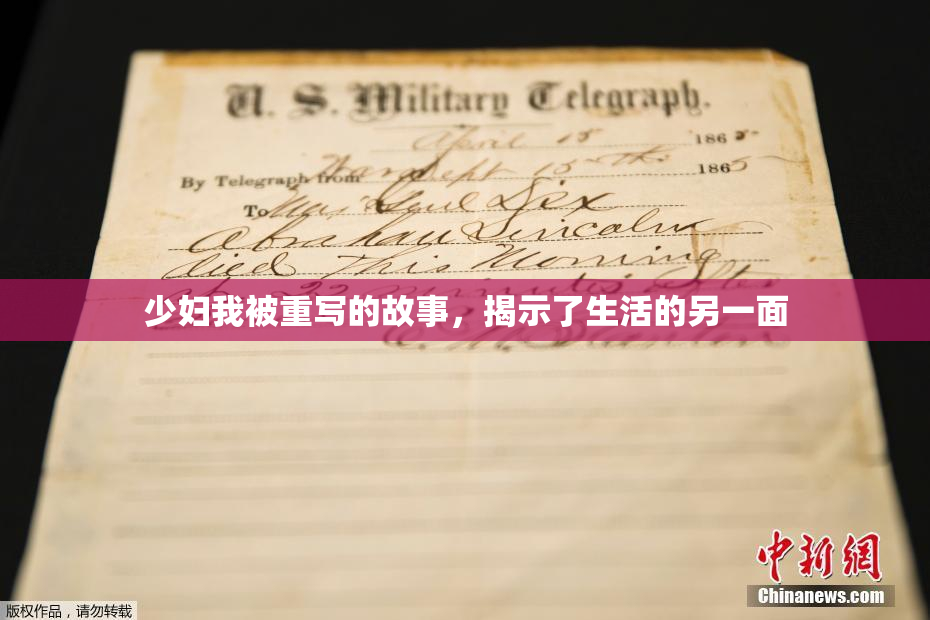 U. S. Military Telegraph.
April 15 1865
By Telegraph from War Dept 15th 1865
To Maj Genl Dix
Abraham Lincoln
died This Morning
at 22 minutes after
少妇我被重写的故事，揭示了生活的另一面
E. M. Stanton
中新网
Chinanews.com
版权作品，请勿转载